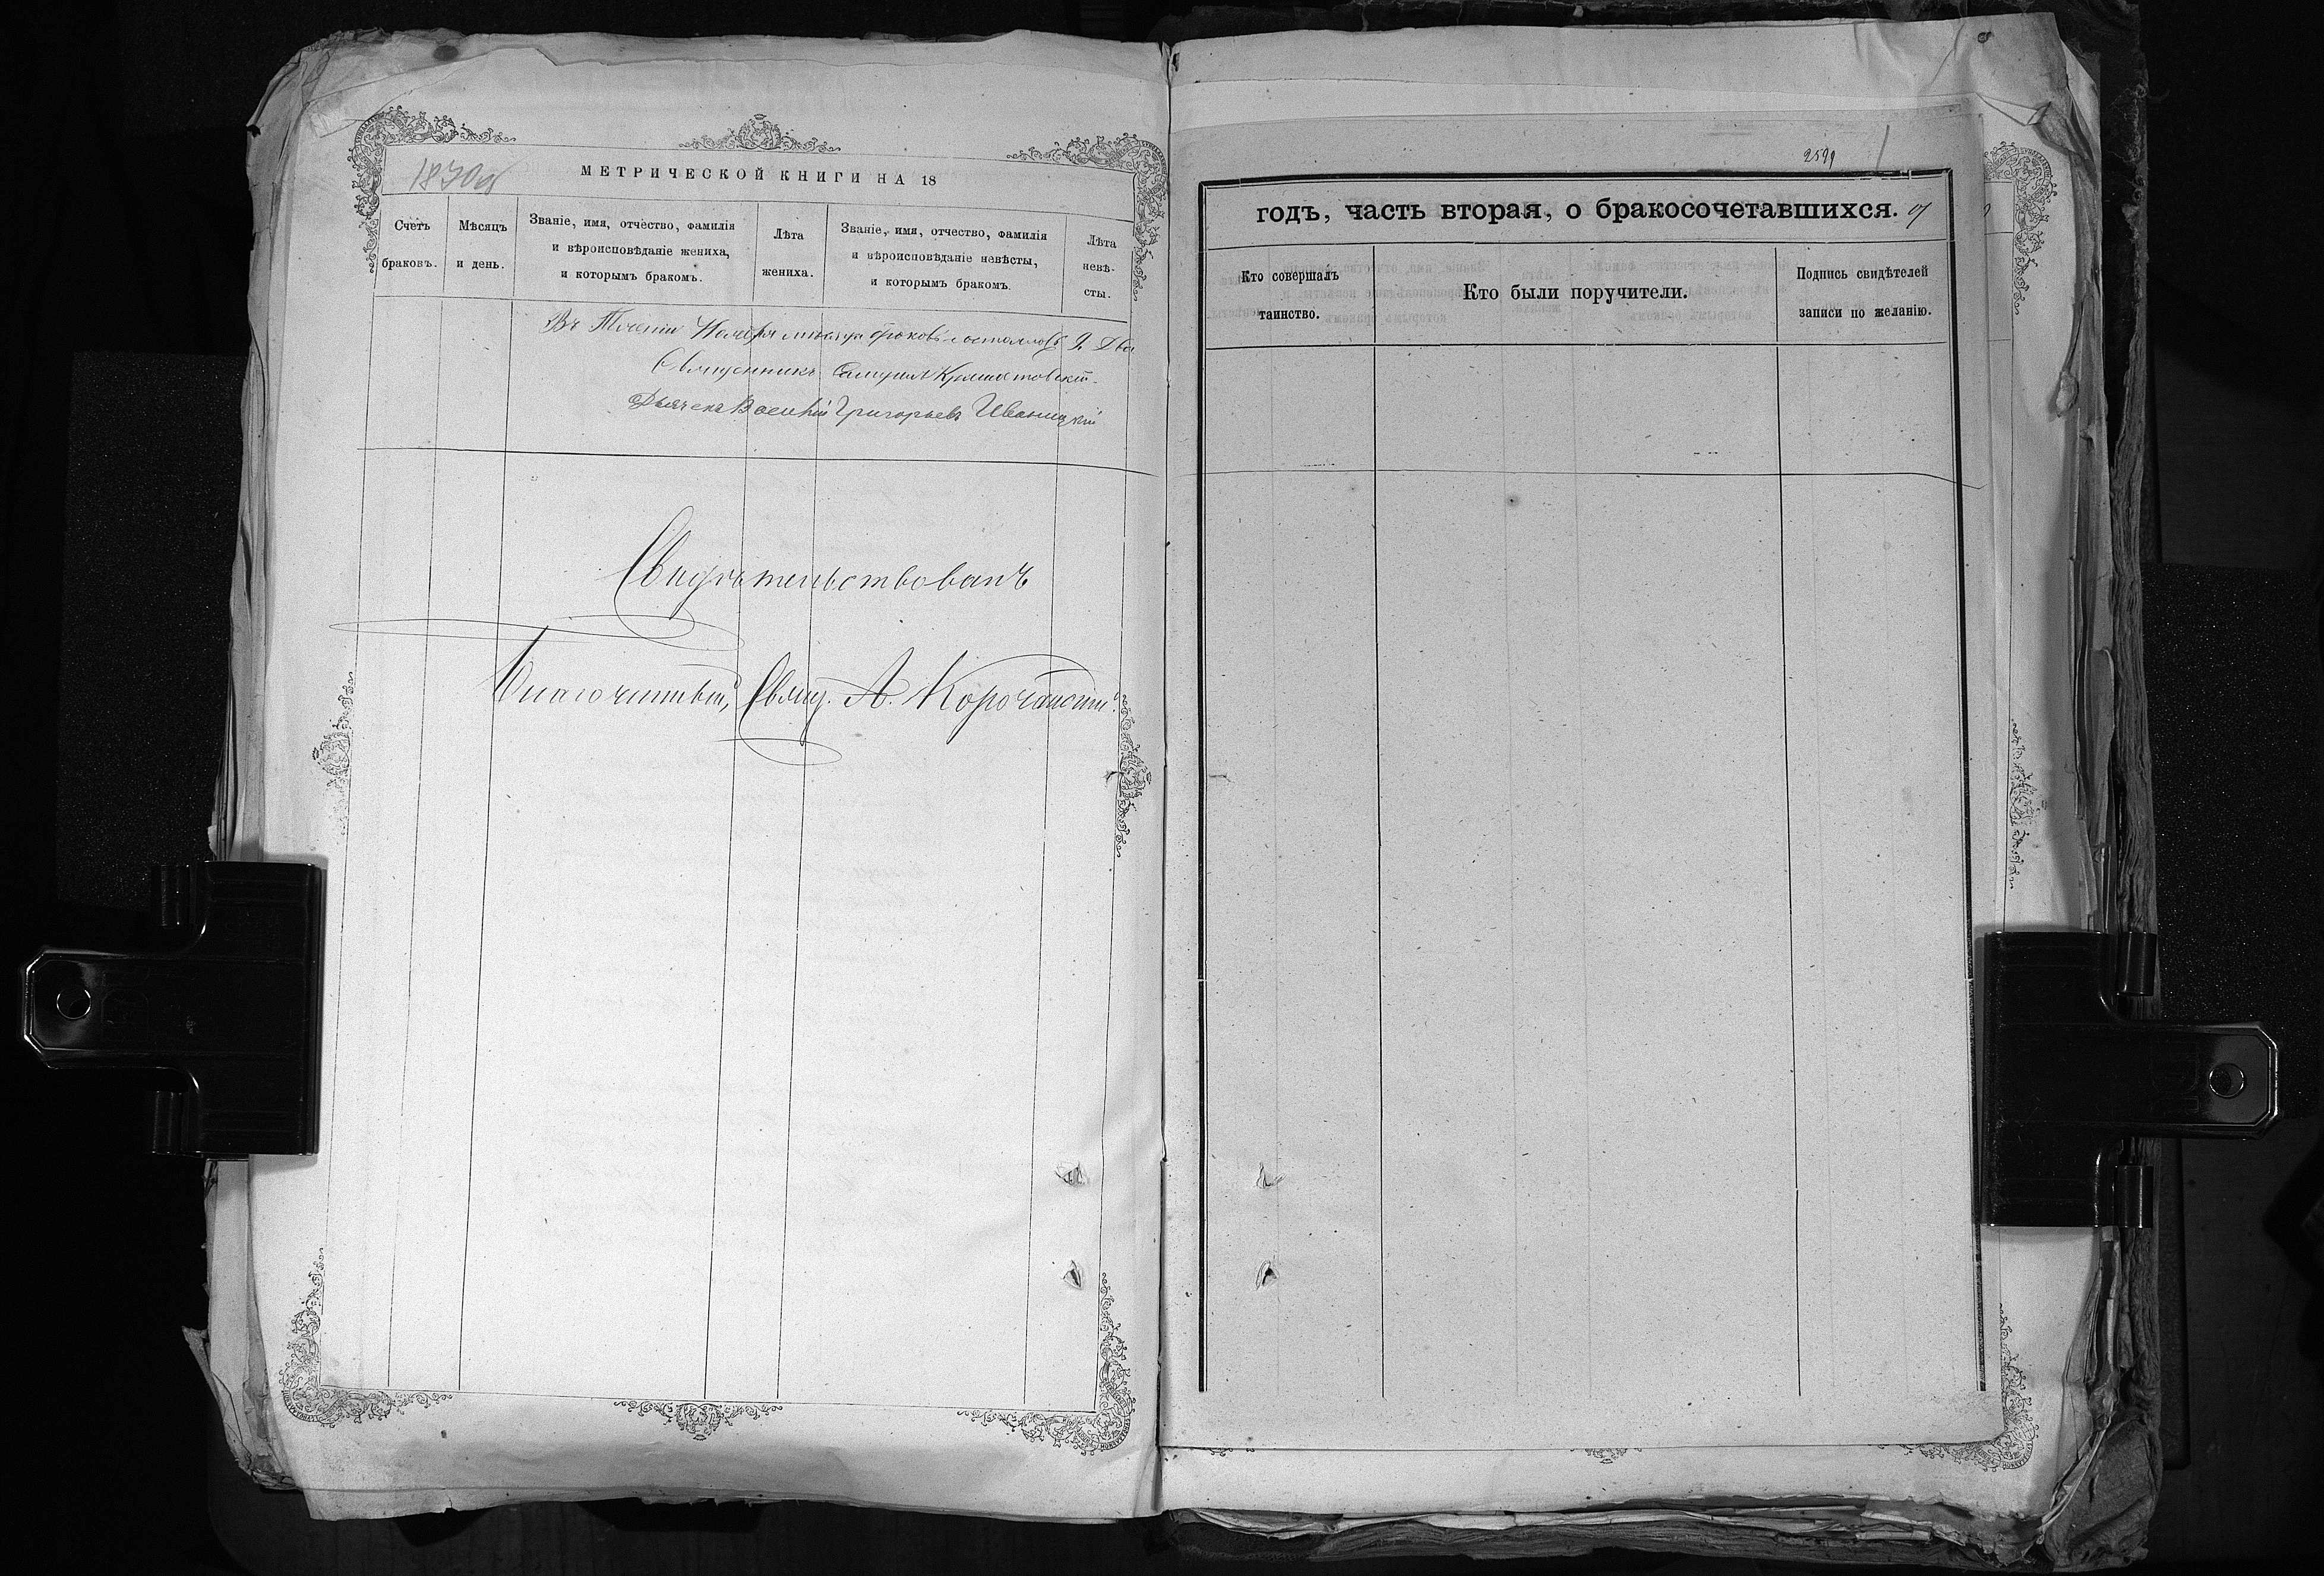 1870
МЕТРИЧЕСКОЙ КНИГИ НА 18
Счетъ браковъ.
Мѣсяцъ и день.
Званіе, имя, отчество, фамилія и вѣроисповѣданіе жениха, и которымъ бракомъ.
Лѣта жениха.
Званіе, имя, отчество, фамилія и вѣроисповѣданіе невѣсты, и которымъ бракомъ.
Лѣта невѣ-сты.
Въ Теченіи Ноября мѣсяца браковъ состоялось 2. Два
Священникъ Самуилъ
Дьячекъ Василій Григорьевъ Иваницкій
Свидѣтельствовалъ
Благочинный, Свящ. А. Корочанскій
2599
годъ, часть вторая, о бракосочетавшихся.
Кто совершалъ таинство.
Кто были поручители.
Подпись свидѣтелей записи по желанію.